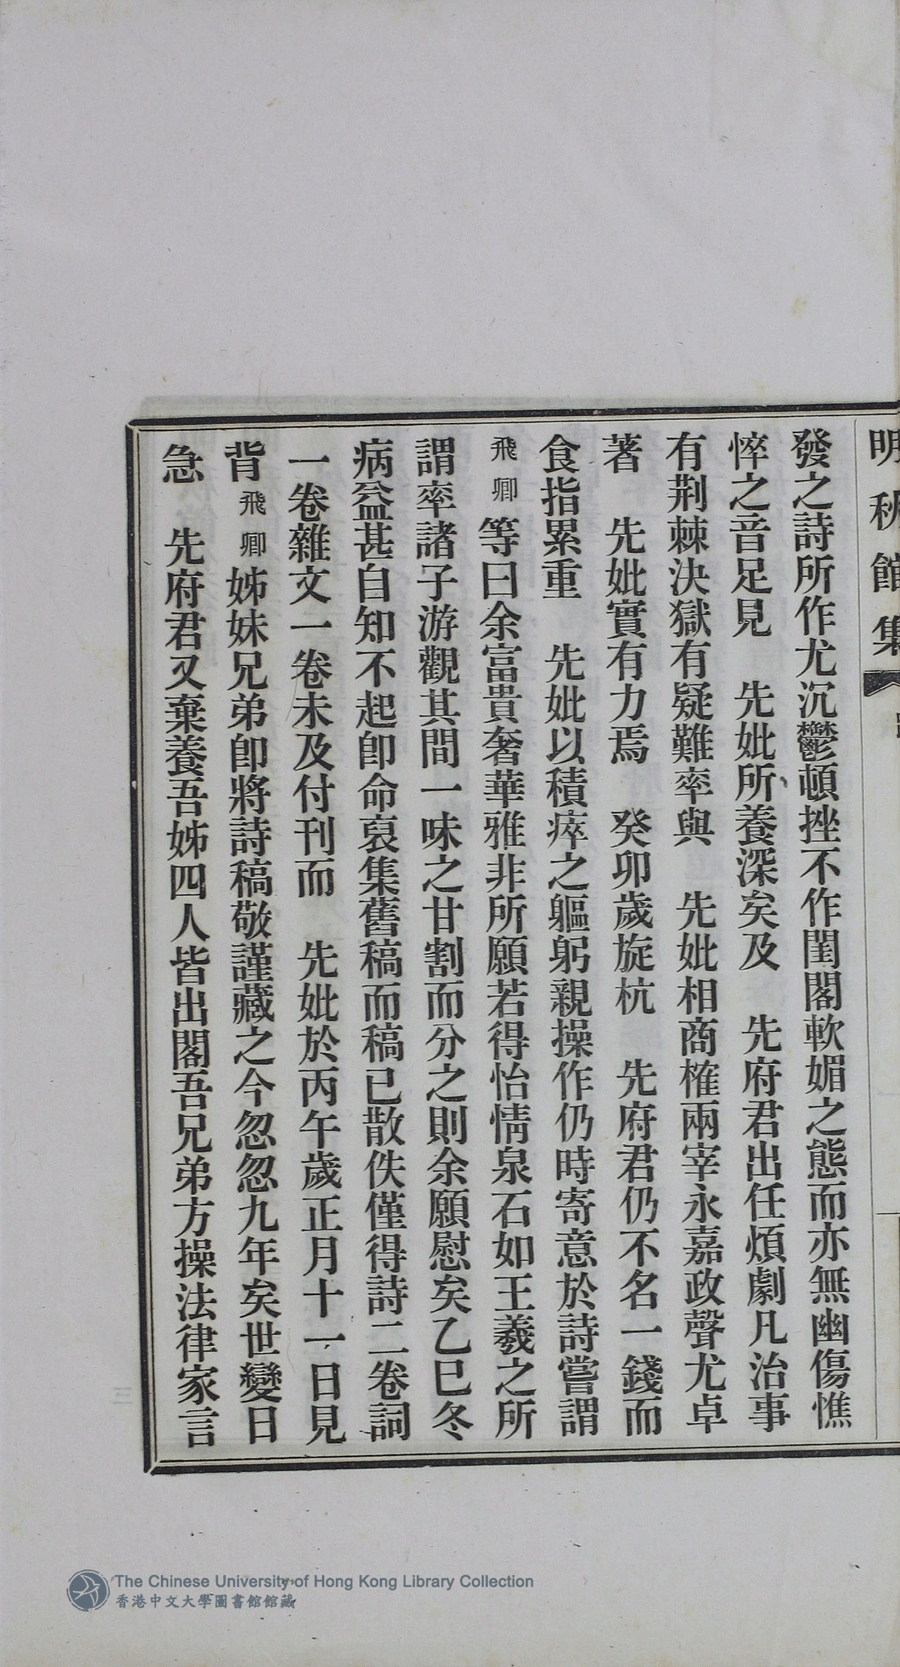 明秋館集
發之詩所作尤沉鬱頓挫不作閨閣軟媚之態而亦無幽傷憔
悴之音足見　先妣所養深矣及　先府君出任煩劇凡治事
有荆棘決獄有疑難率與　先妣相商榷兩宰永嘉政聲尤卓
著　先妣實有力焉　癸卯歲旋杭　先府君仍不名一錢而
食指累重　先妣以積瘁之軀躬親操作仍時寄意於詩嘗謂
飛卿等曰余富貴奢華雅非所願若得怡情泉石如王羲之所
謂率諸子游觀其間一味之甘割而分之則余願慰矣乙巳冬
病益甚自知不起卽命裒集舊稿而稿已散佚僅得詩二卷詞
一卷雜文一卷未及付刊而　先妣於丙午歲正月十一日見
背飛卿姊妹兄弟卽將詩稿敬謹藏之今忽忽九年矣世變日
急　先府君又棄養吾姊四人皆出閣吾兄弟方操法律家言
The Chinese University of Hong Kong Library Collection
香港中文大學圖書館館藏